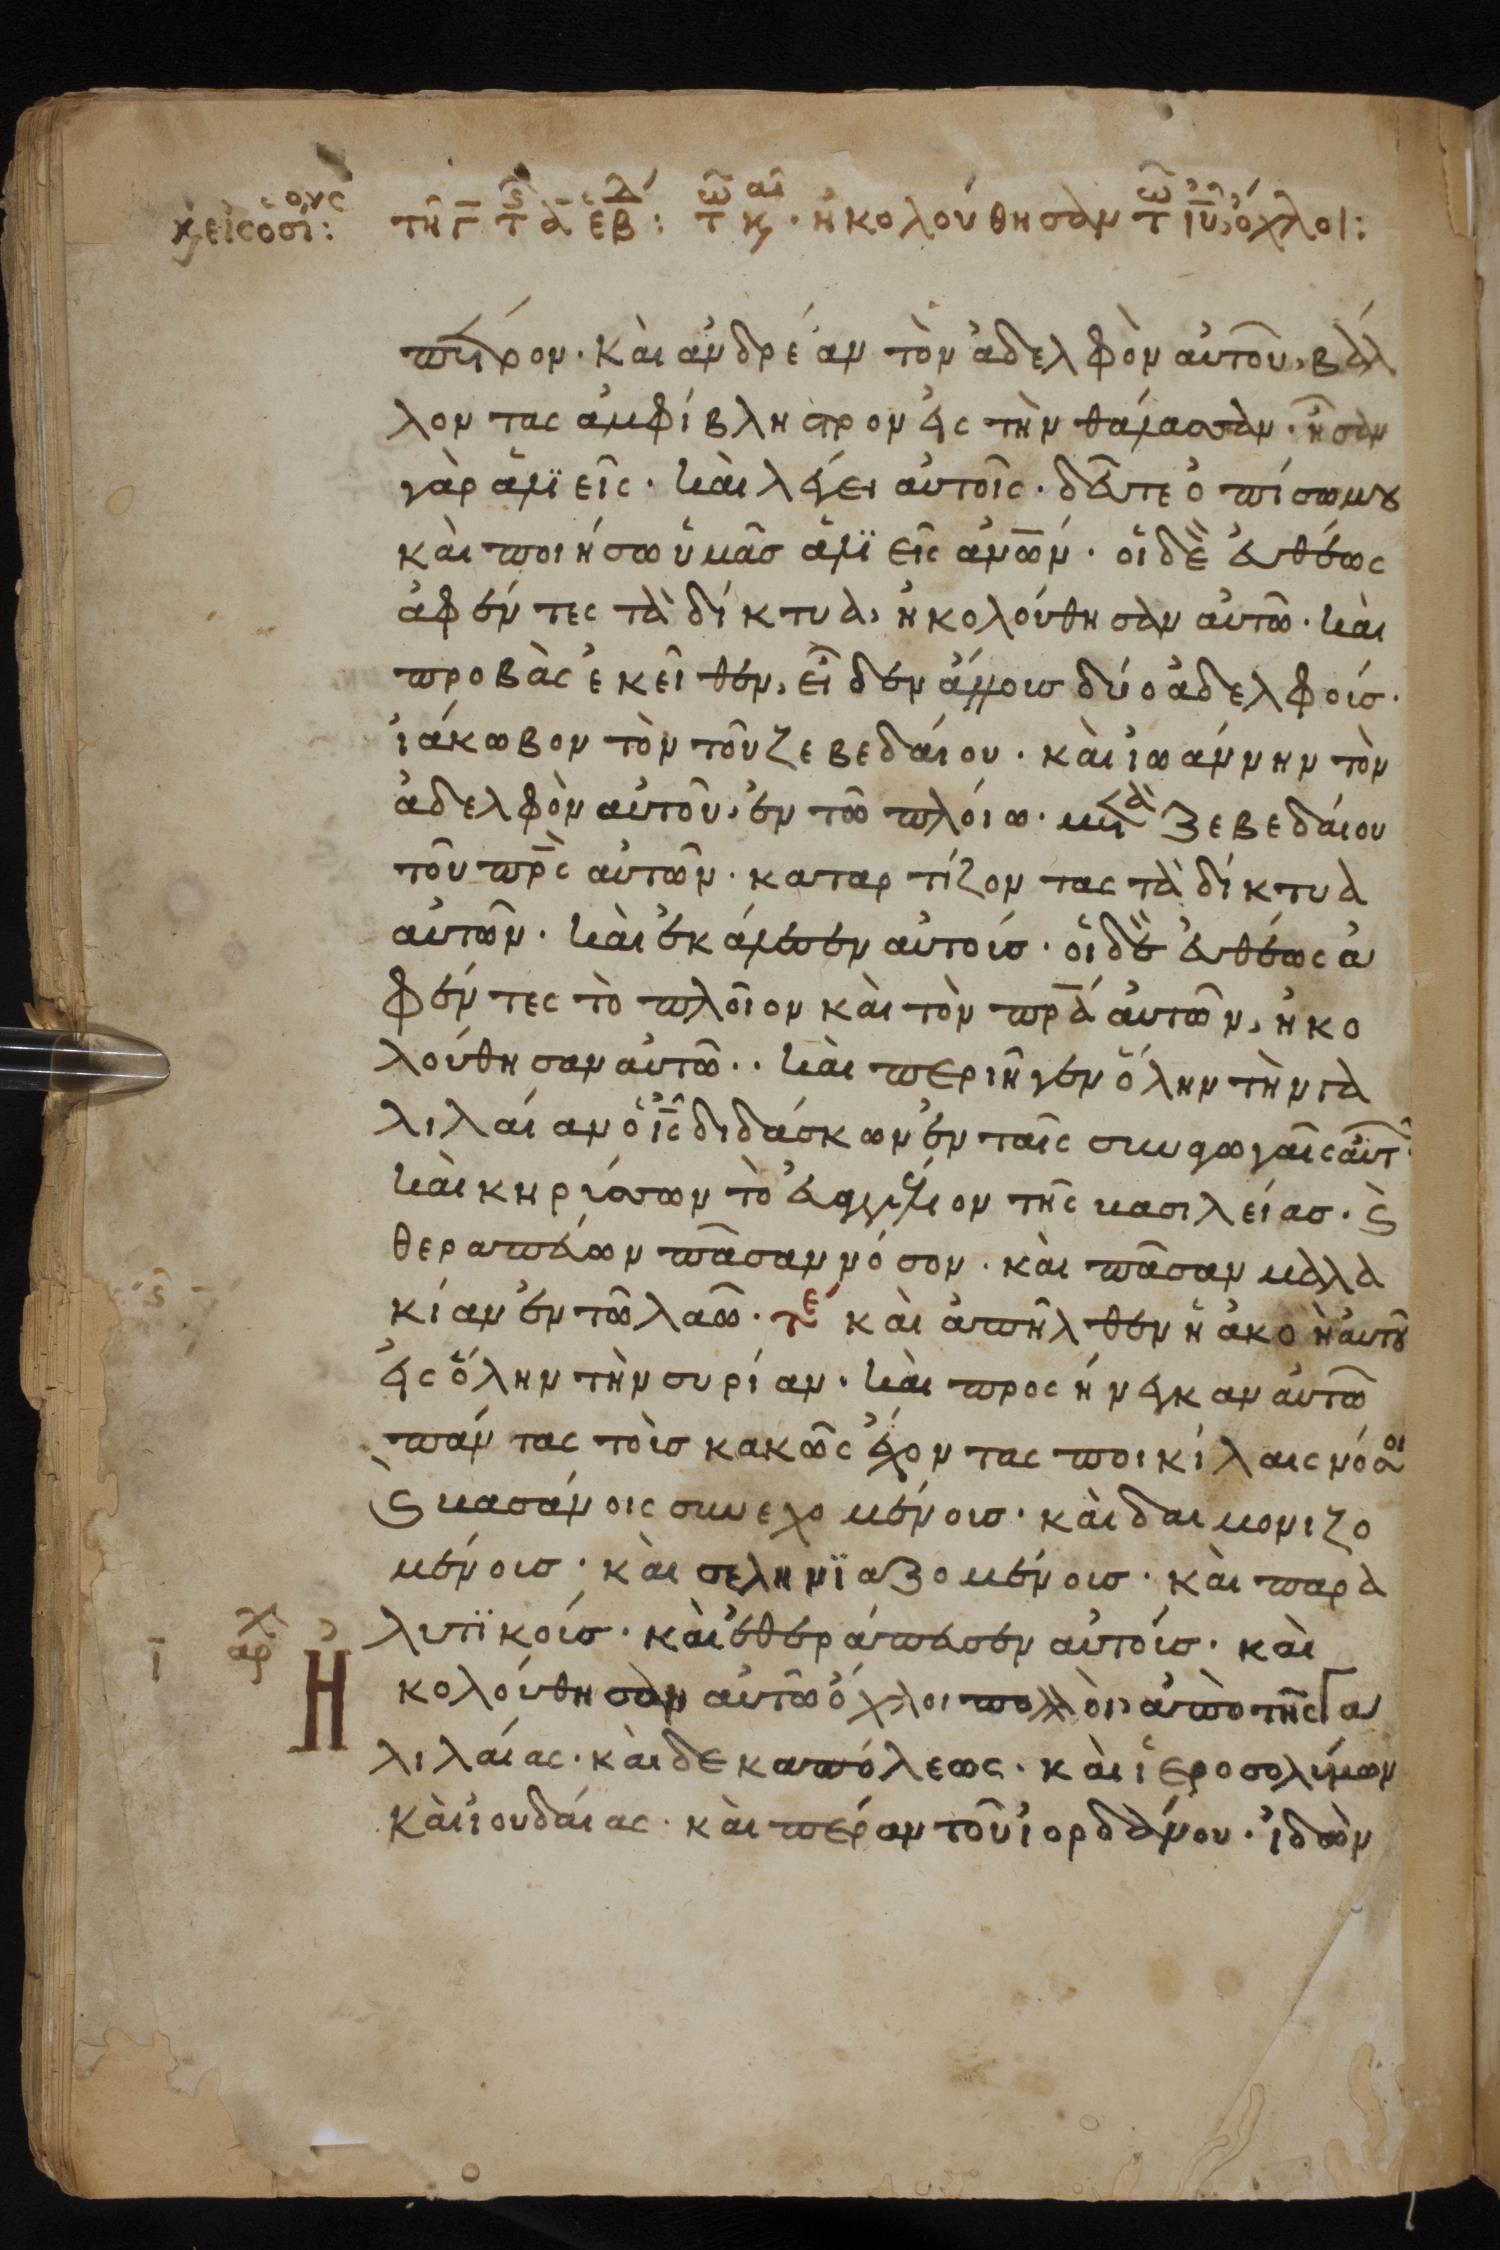 κ εἰς ὁσί ους: τῇ γ τ ς ἁ ἑβδ: τῶ καὶ. ἠκολούθησαν τῶ ιῦ, ὄχλοι:
πέτρον. καὶ ἀνδρέαν τὸν ἀδελφὸν αὐτοῦ, βάλ
λοντας ἀμφίβληστρον εἰς τὴν θάλασσαν. ἦσαν
γὰρ ἁλϊεῖς. καὶ λέγει αὐτοῖς. δεῦτε ὀπίσω μου
καὶ ποιήσω ὑμᾶσ ἁλϊεῖς ἀνῶν. οἱ δὲ εὐθέως
ἀφέντες τὰ δίκτυα, ἠκολούθησαν αὐτῶ. καὶ
προβὰς ἐκεῖθεν, εἶδεν ἄλλουσ δύο ἀδελφούσ.
ἰάκωβον τὸν τοῦ ζεβεδαίου. καὶ ἰωάννην τὸν
ἀδελφὸν αὐτοῦ, ἐν τῶ πλοίω. μετὰ ζεβεδαίου
τοῦ πρς αὐτῶν. καταρτίζοντας τὰ δίκτυα
αὐτῶν. καὶ ἐκάλεσεν αὐτούσ. οἱ δὲ εὐθέως ἀ
φέντες τὸ πλοῖον καὶ τὸν πρα αὐτῶν, ἠκο
λούθησαν αὐτῶ.. καὶ περιῆγεν ὅλην τὴν γα
λιλαίαν ὁ ις διδάσκων ἐν ταῖς συναγωγαῖς αὐτ
καὶ κηρύσσων τὸ εὐαγγέλιον τῆς βασιλείασ. ϛ
θεραπεύων πᾶσαν νόσον. καὶ πᾶσαν μαλα
κίαν ἐν τῶ λαῶ. τε καὶ ἀπῆλθεν ἡ ἀκοὴ αὐτοῦ
εἰς ὅλην τὴν συρίαν. καὶ προσήνεγκαν αὐτῶ
πάντας τοὺσ κακῶς ἔχοντας ποικίλαις νόσοι
ϛ βασάνοις συνεχομένουσ. καὶ δαιμονιζο
μένουσ. καὶ σεληνϊαζομένουσ. καὶ παρα
λυτϊκούσ. καὶ ἐθεράπευσεν αὐτούσ. καὶ
ι αρχ Ἠκολούθησαν αὐτῶ ὄχλοι πολλοὶ, ἀπὸ τῆς γα
λιλαίας. καὶ δεκαπόλεως. καὶ ἱεροσολύμων
καὶ ἰουδαίας. καὶ πέραν τοῦ ἰορδάνου. ἰδὼν